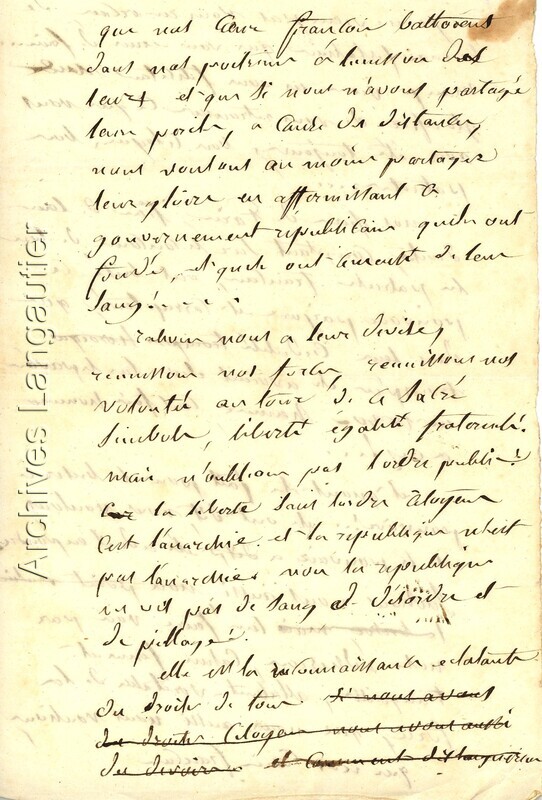 que nos cœur françois battoient
dans nos poitrine á lunission des
leurs et que si nous n'avons partagé
leur perils, a cause des distances,
nous voulons au moins partager
leur gloire en affermissant ce
gouvernement républicain quils ont
fondé, et quils ont cimenté de leur
sang! - - - -
ralions nous a leur devise,
reunissons nos forces, reunissons nos
volonté autour de ce sacré
simbole, liberté égalité fraternité.
mais n'oublions pas lordre public!
Car la liberté sans lordre Citoyens
cest lanarchie. et la republique nest
pas lanarchie, non la republique
ne vit pas de sang de désordre et
de pillage.
elle est la reconnaissance eclatante
des droits de tous. si nous avons
des droits Citoyens nous avons aussi
des devoirs et comment
Archives Langautier